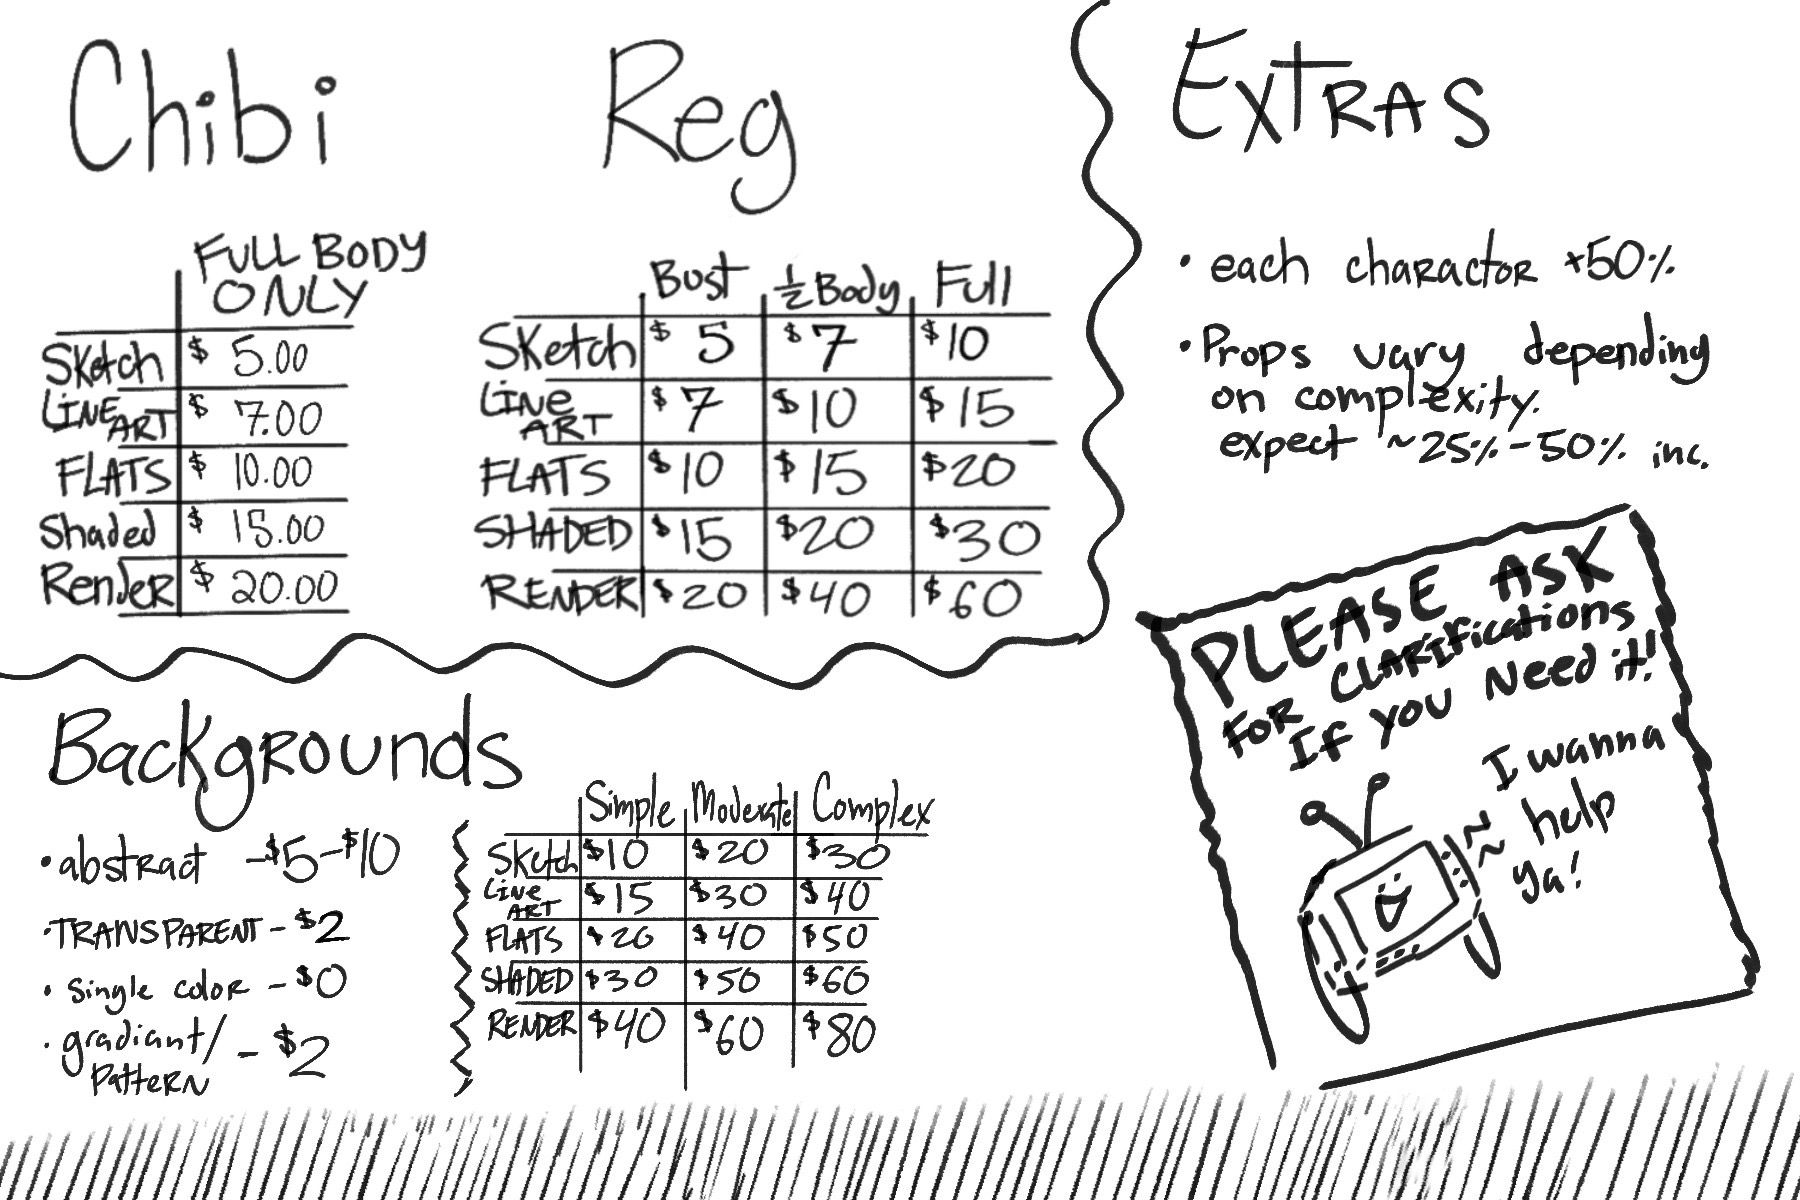 Chibi
FULL BODY
ONLY
Sketch $ 5.00
LINE ART $ 7.00
FLATS $ 10.00
Shaded $ 15.00
Render $ 20.00
Reg
Bust ½ Body Full
Sketch $ 5 $ 7 $10
Line ART $ 7 $10 $15
FLATS $10 $15 $20
SHADED $15 $20 $30
RENDER $20 $40 $60
EXTRAS
• each charactor +50%
• Props vary depending
on complexity.
expect ~25%-50% inc.
PLEASE ASK
FOR CLARIfications
If you Need it!
I wanna
help
ya!
Backgrounds
• abstract -$5-$10
• TRANSPARENT - $2
• single color - $0
• gradiant/
Pattern - $2
Simple Moderate Complex
Sketch $10 $20 $30
Line ART $15 $30 $40
FLATS $20 $40 $50
SHADED $30 $50 $60
RENDER $40 $60 $80